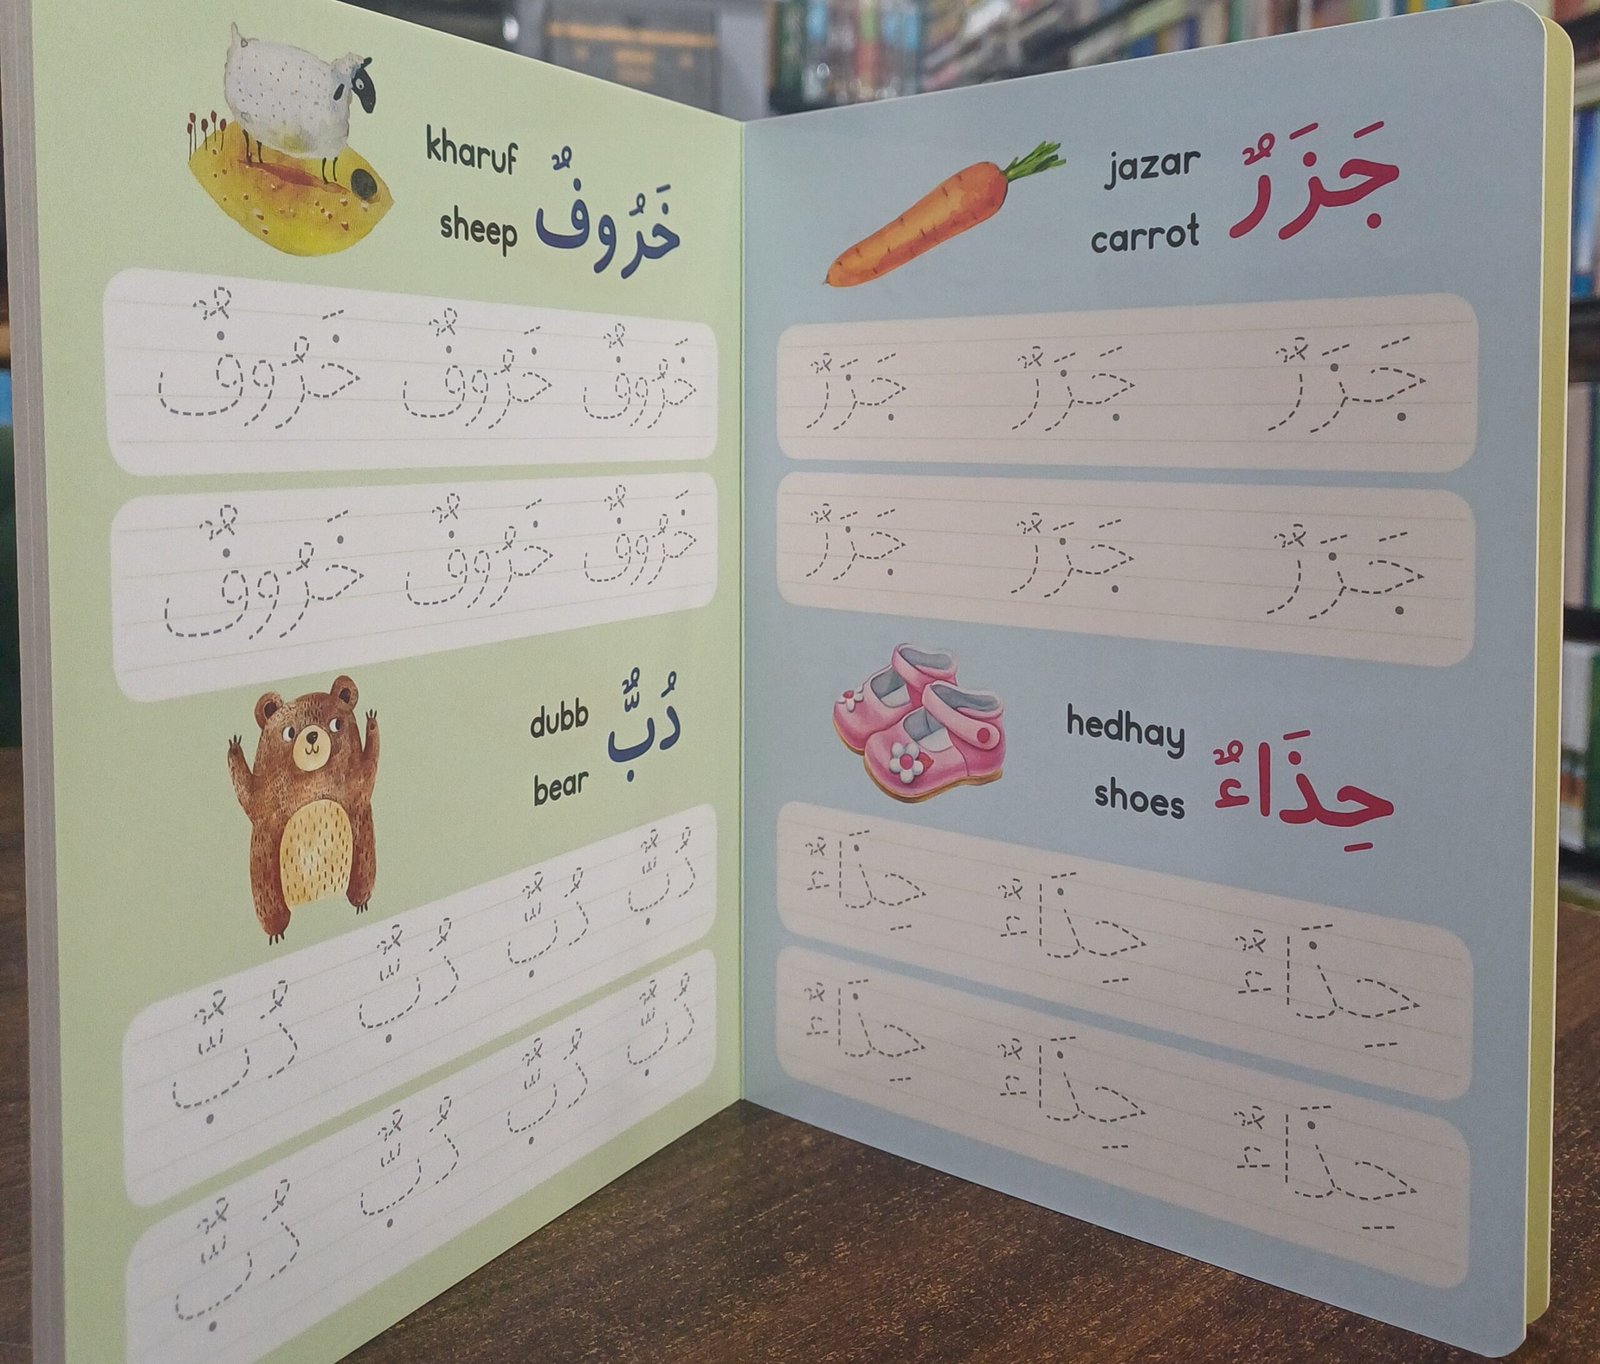 kharuf
خَرُوفٌ
sheep
خَرُوفٌ خَرُوفٌ خَرُوفٌ
خَرُوفٌ خَرُوفٌ خَرُوفٌ
dubb
دُبٌّ
bear
دُبٌّ دُبٌّ دُبٌّ دُبٌّ
دُبٌّ دُبٌّ دُبٌّ دُبٌّ
jazar
جَزَرٌ
carrot
جَزَرٌ جَزَرٌ جَزَرٌ
جَزَرٌ جَزَرٌ جَزَرٌ
hedhay
حِذَاءٌ
shoes
حِذَاءٌ حِذَاءٌ حِذَاءٌ
حِذَاءٌ حِذَاءٌ حِذَاءٌ